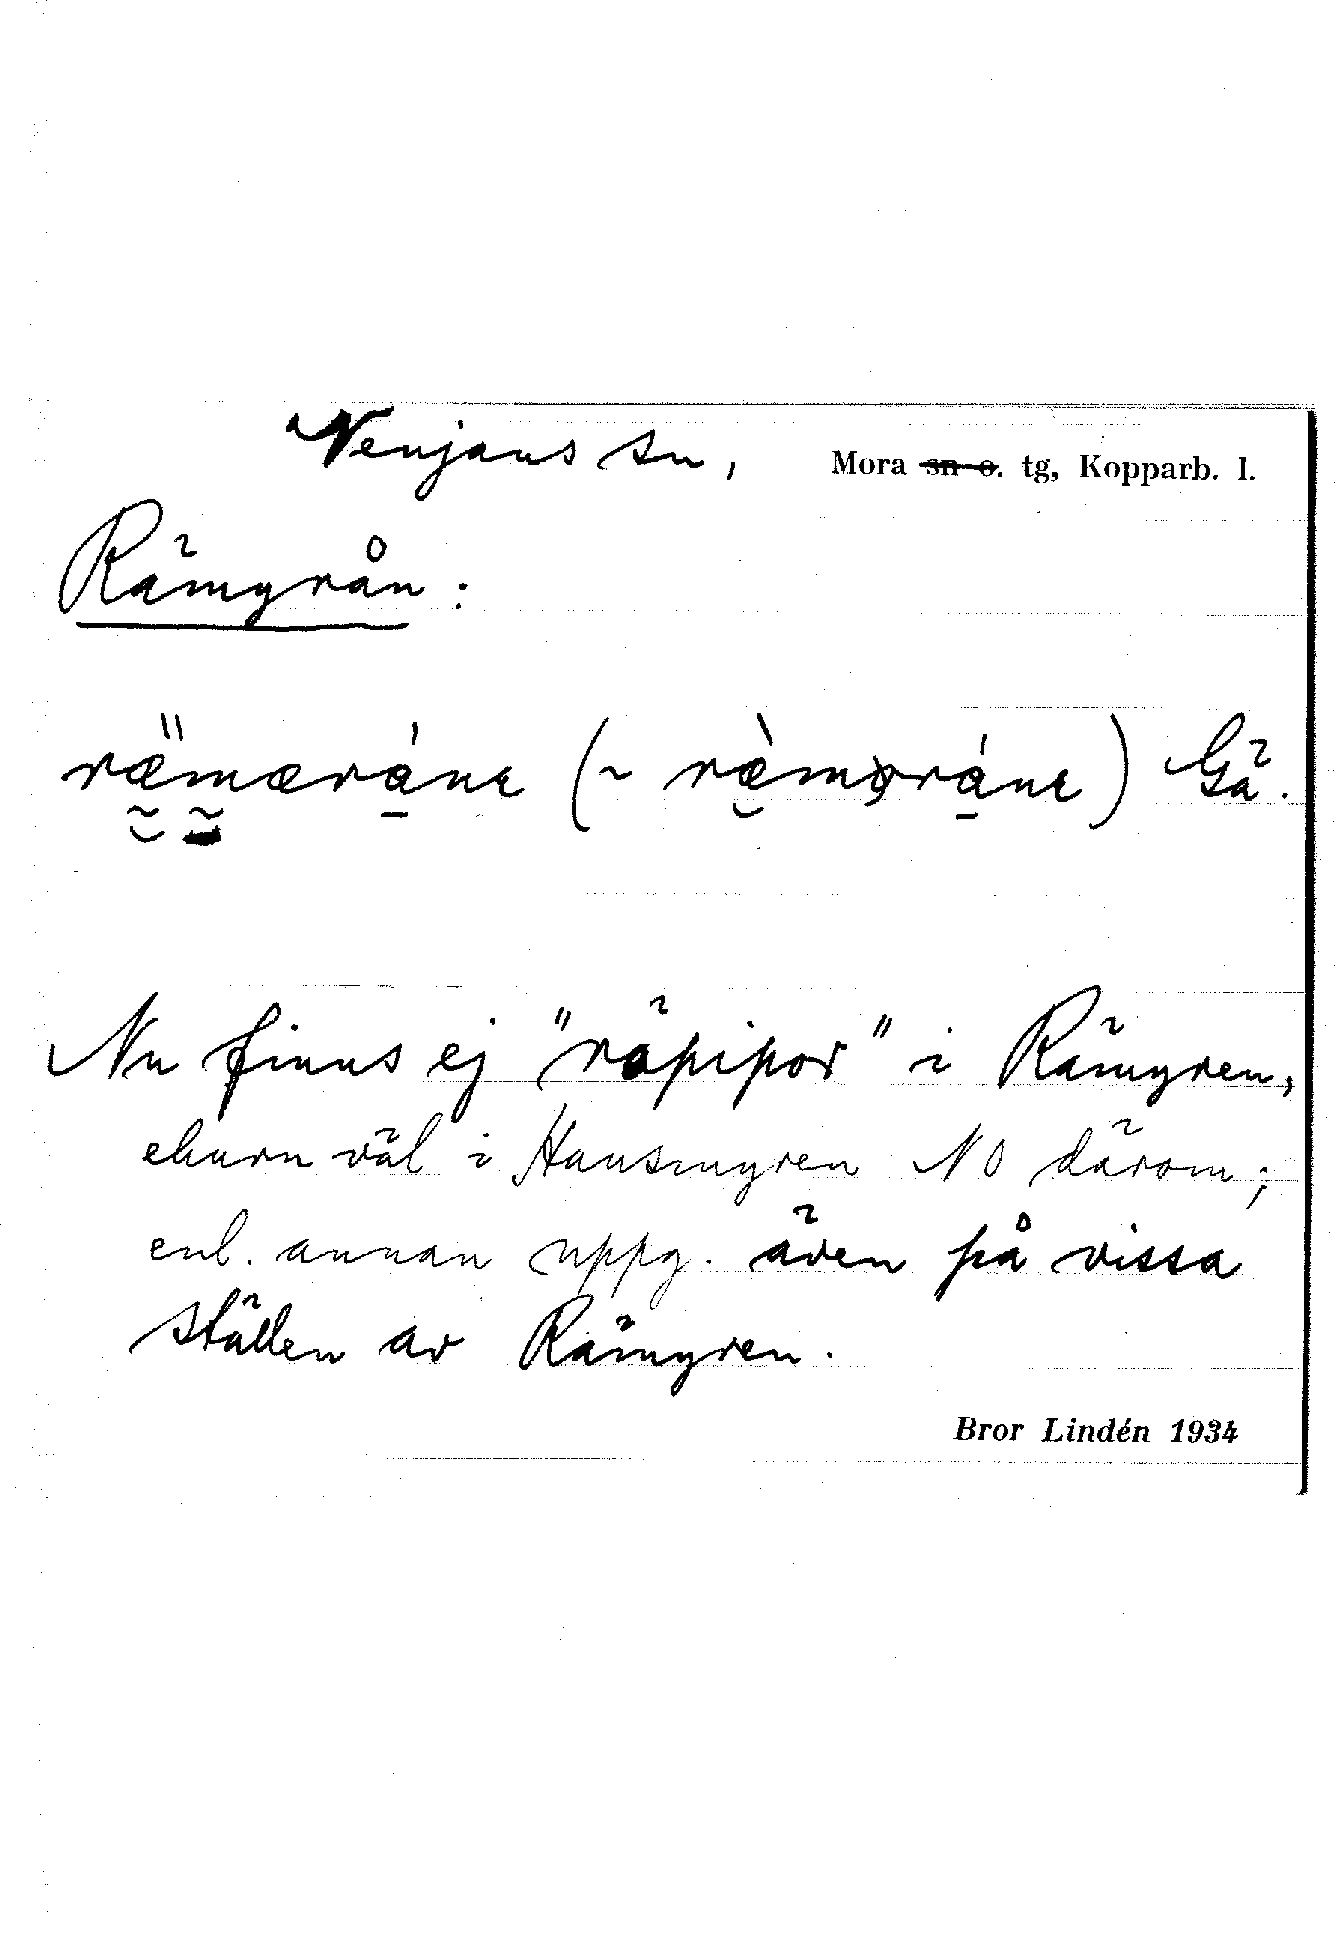 Venjans sn, Mora sn o. tg, Kopparb. l.
Rämyrån:
rämæráne (~ ræ̀mæráne) Gä.
Nu finns ej "räpipor" i Rämyren,
ehuru väl i Hansmyren NO därom;
enl. annan uppg. även på vissa
ställen av Rämyren.
Bror Lindén 1934